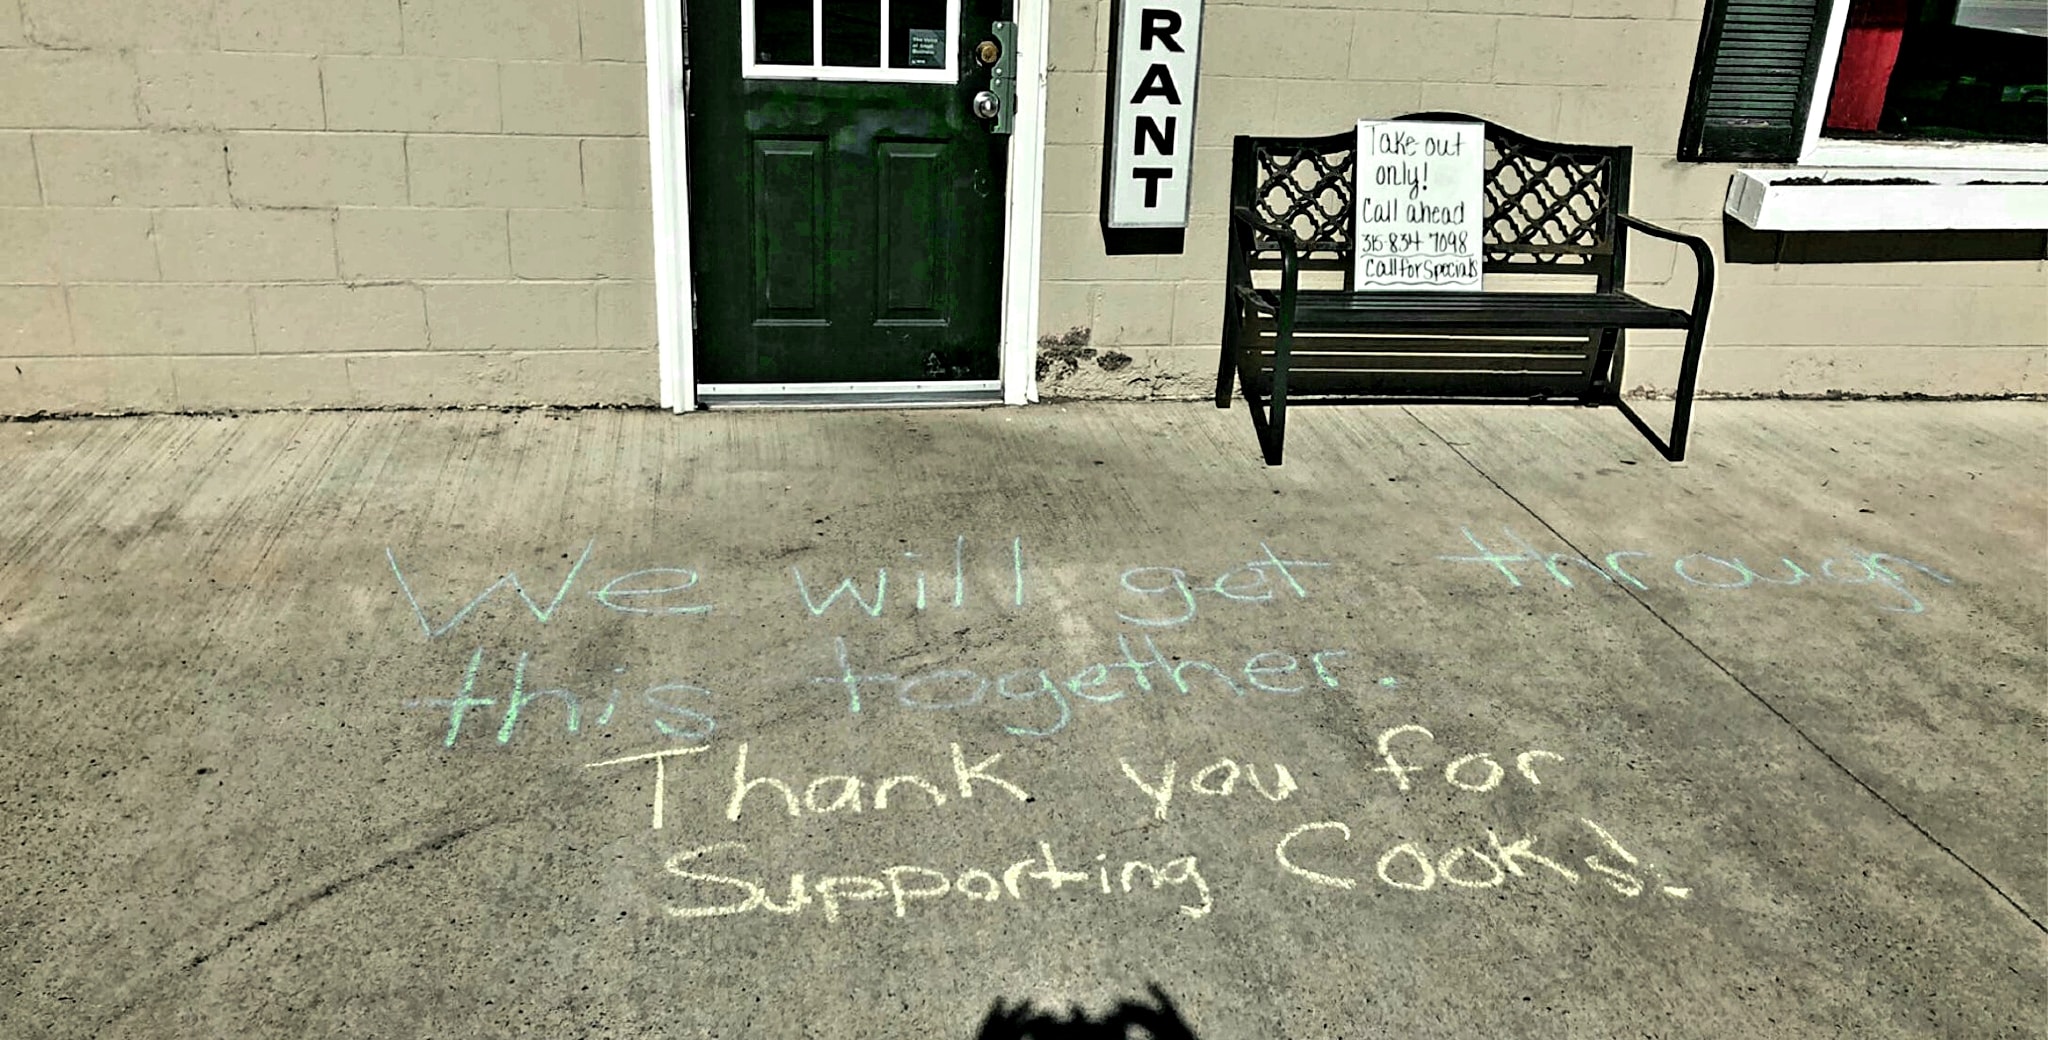 The Voice
of Small
Business
RANT
Take out
only!
Call ahead
315-834-7098
Call for Specials
We will get through
this together.
Thank you for
Supporting Cooks!